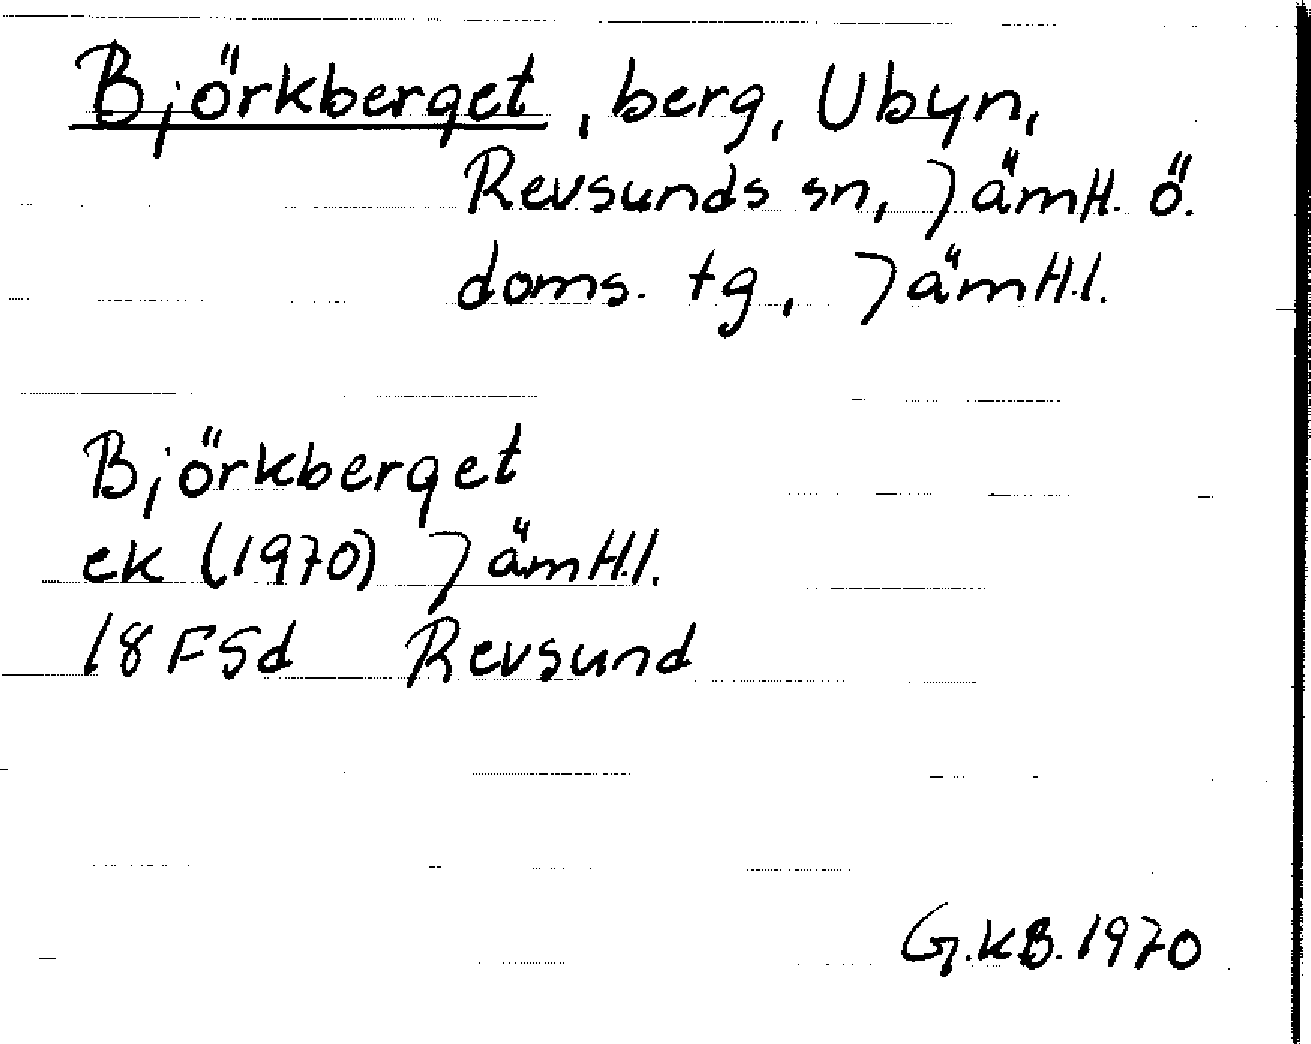 Björkberget, berg, Ubyn,
Revsunds sn, Jämtl. ö.
doms. tg, Jämtl.l.
Björkberget
ek (1970) Jämtl.l.
18FSd Revsund
G.KB.1970